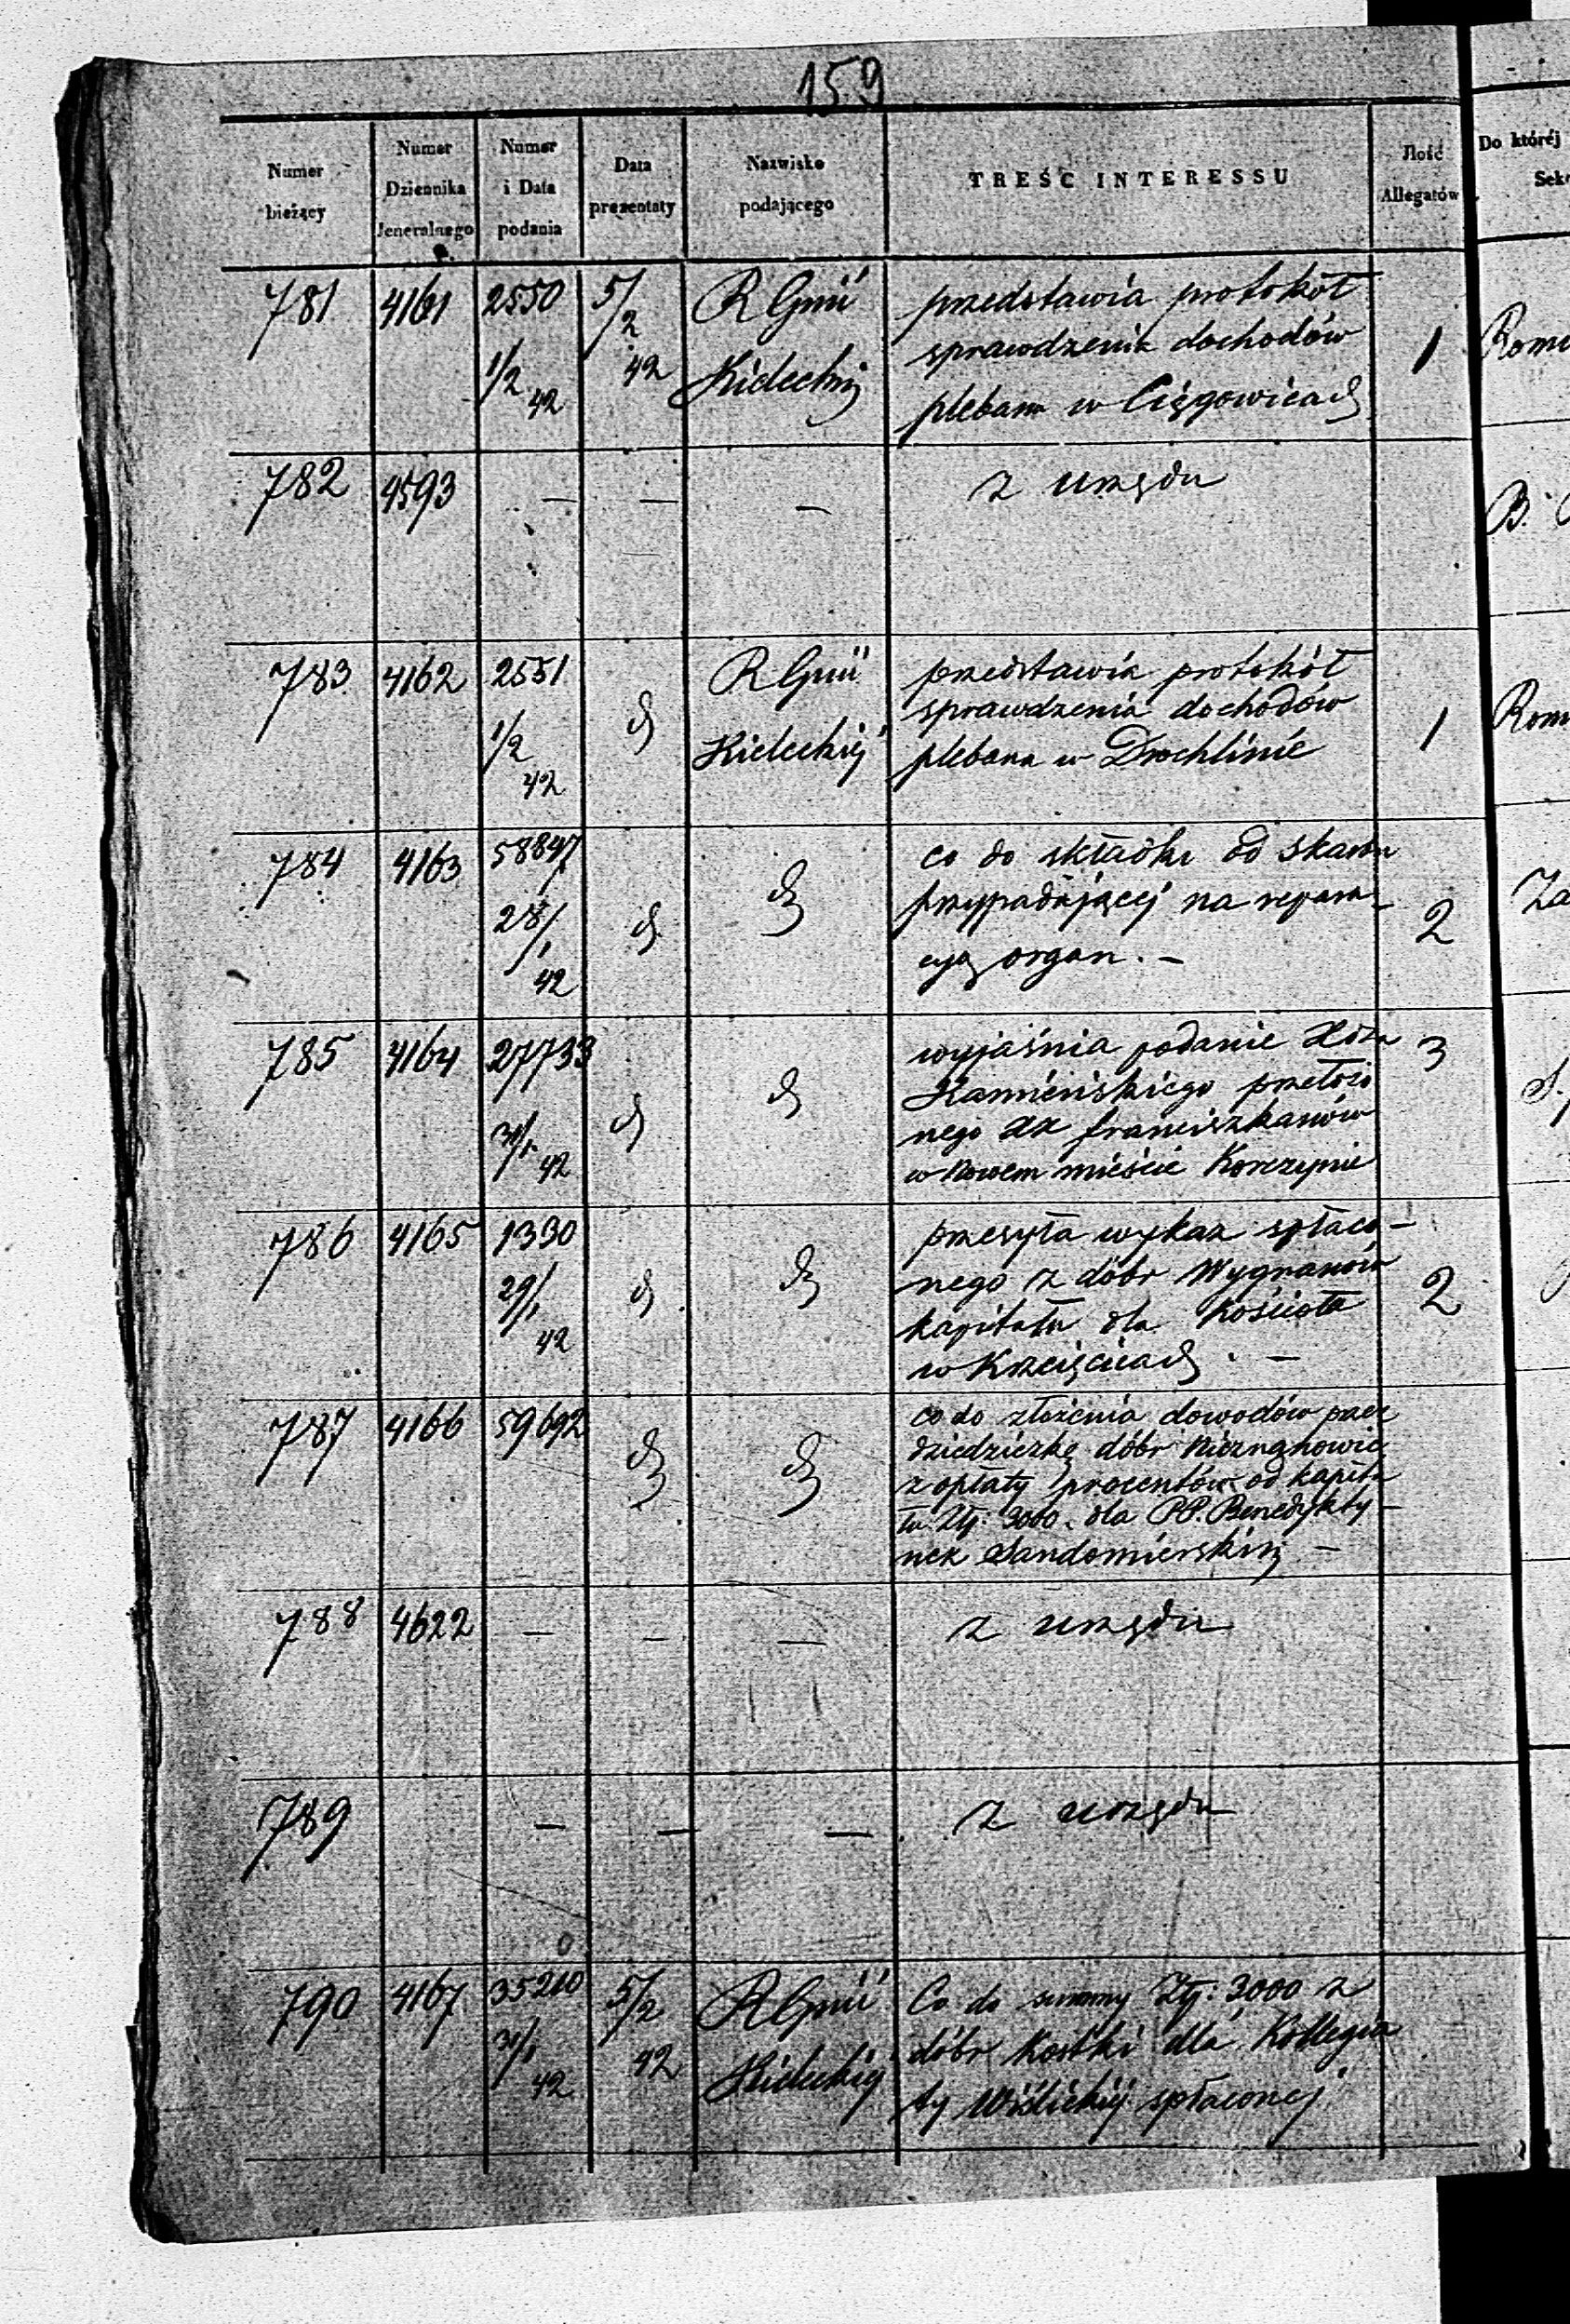 159
Numer bieżący
Numer Dziennika Jeneralnego
Numer i Data podania
Data prezentaty
Nazwisko podającego
TREŚĆ INTERESSU
Ilość Allegatów
Do któréj
Sek
781 4161 2550 1/2 42 5/2 42
R Gnii
Kieleckiej
przedstawia protokół
sprawdzenia dochodów
plebana w Ciągowicach
1
Rom
782 4593 — — —
z urzędu
B.
783 4162 2551 1/2 42 d
R Gnii
Kieleckiej
przedstawia protokół
sprawdzenia dochodów
plebana w Drochlinie
1
Rom
784 4163 58847 28/1 42 d d
co do składki od skarbu
przypadającej na repara-
cyą organ. —
2
Za
785 4164 27733 31/1 42 d d
wyjaśnia podanie Xdza
Kamieńskiego przełożo
nego XX franciszkanów
w Nowem mieście Korczynie
3
786 4165 1330 29/1 42 d d
przesyła wykaz spłaco-
nego z dóbr Wygnanów
kapitału dla Kościoła
w Krzcięcicach. —
2
787 4166 59692 d d
co do złożenia dowodów przez
dziedziczkę dóbr
z opłaty procentów od kapita
łu Złp: 3000. dla PP. Benedykty-
nek Sandomierskich —
788 4622 — — —
z urzędu
789 — — —
z urzędu
790 4167 35210 31/1 42 5/2 42
R Gnii
Kieleckiej
Co do summy Złp: 3000 z
dóbr Kostki dla Kollegia
ty Wiślickiej spłaconej